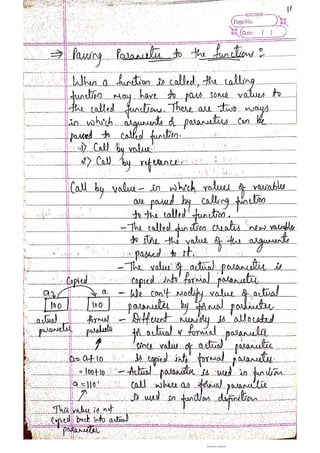 11
Page No.
Date: | |
⇒ Passing Parameter to the function :
When a function is called, the calling
function may have to pass some values to
the called function. There are two ways
in which arguments of parameters can be
passed to called function.
1) Call by value
2) Call by reference
Call by value - in which values of variables
are passed by calling function
to the called function.
- The called function creates new variables
to store the value of the arguments
passed to it.
- The value of actual parameter is
copied into formal parameter
Copied
a → a.
100 100
actual formal
parameter parameter
- We can't modify value of actual
parameter by formal parameter.
- Different memory is allocated
for actual & formal parameter
since value of actual parameter
is copied into formal parameter
a = a+10
= 100+10
a = 110
- Actual parameter is used in function
call where as formal parameter
is used in function definition
This value is not
copied back into actual
parameter